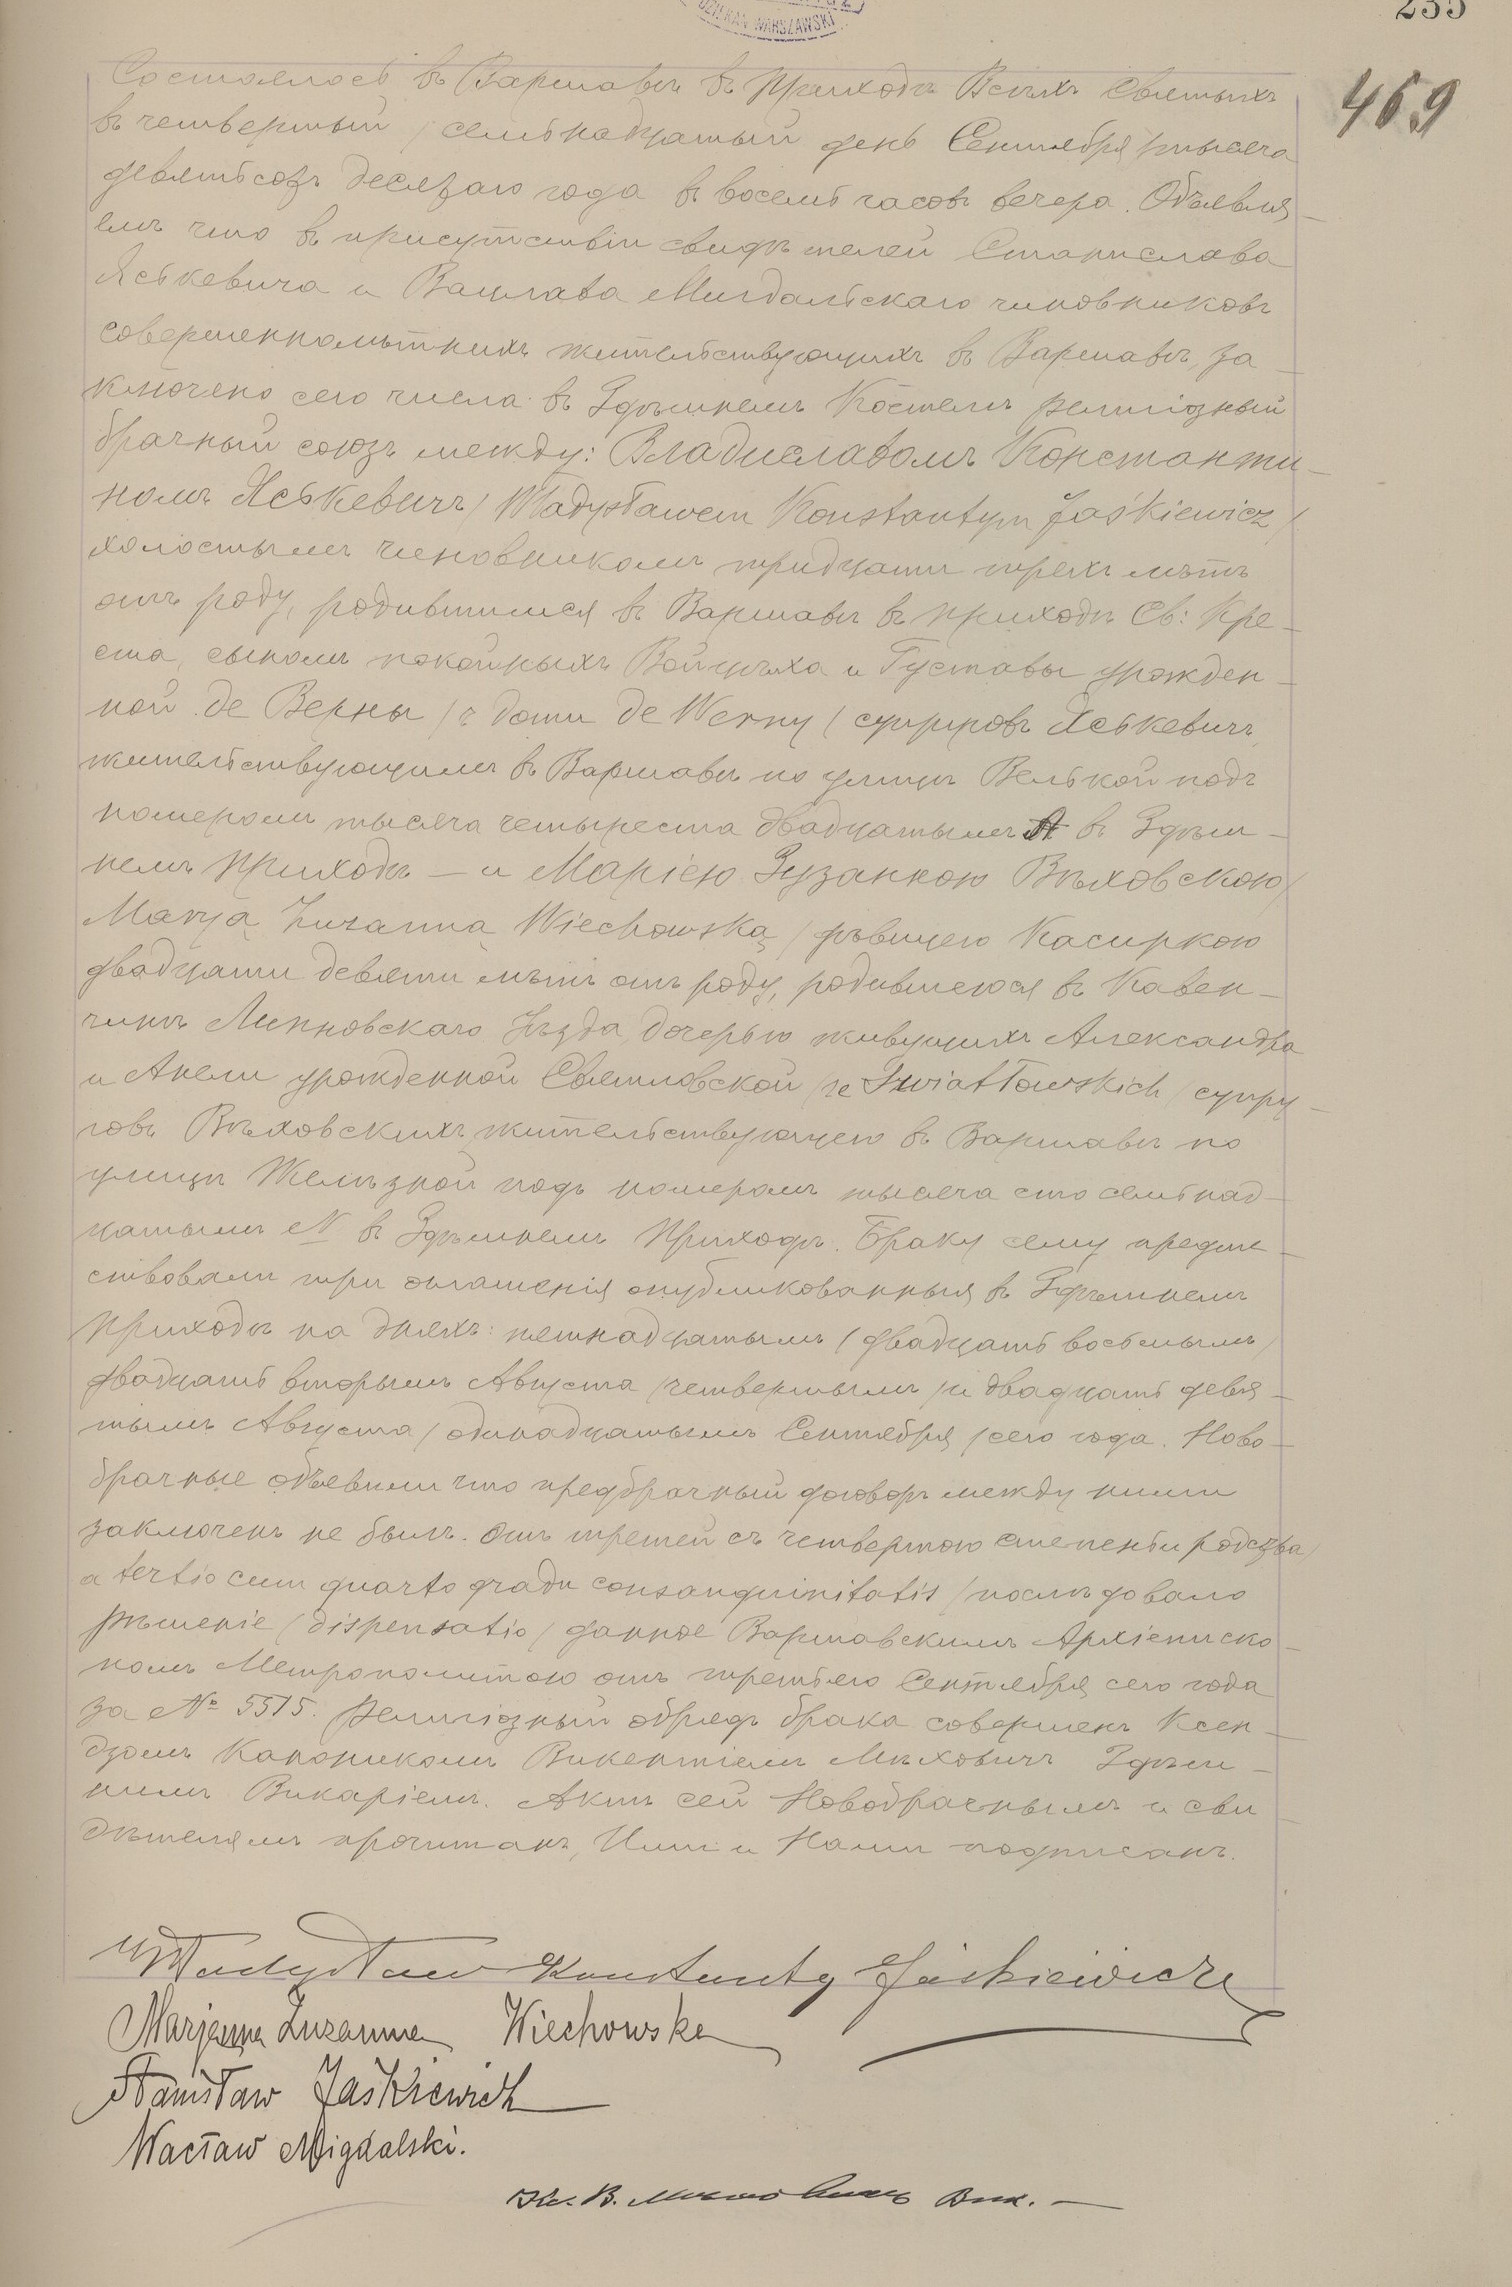 DZIEKAN WARSZAWSKI
235
469
Состоялось въ Варшавѣ въ приходѣ Всѣхъ Святыхъ
въ четвертый / семнадцатый день Сентября / тысяча
девятьсотъ десятаго года въ восемь часовъ вечера. Объявля-
емъ что въ присутствіи свидѣтелей Станислава
Яськевича и Вацлава Мигдальскаго чиновниковъ
совершеннолѣтнихъ жительствующихъ въ Варшавѣ за-
ключено сего числа въ Здѣшнемъ Костелѣ религіозный
брачный союзъ между: Владиславомъ Константи-
номъ Яськевичъ / Władysławem Konstantym Jaśkiewicz /
холостымъ чиновникомъ тридцати трехъ лѣтъ
отъ роду, родившимся въ Варшавѣ въ приходѣ Св: Кре-
ста, сыномъ покойныхъ Войцѣха и Густавы урожден-
ной де Верны / z domu de Werny / супруговъ Яськевичъ,
жительствующимъ въ Варшавѣ по улицѣ Велькой подъ
номеромъ тысяча четыреста двадцатымъ А въ Здѣш-
немъ приходѣ — и Маріею Зузанною Вѣховскою /
Maryą Zuzanna Wiechowską / дѣвицею Касиркою
двадцати девяти лѣтъ отъ роду, родившеюся въ Кавен-
чинѣ Липновскаго уѣзда, дочерью живущихъ Александра
и Анели урожденной Святловской / ze Swiatłowskich / супру-
говъ Вѣховскихъ, жительствующею въ Варшавѣ по
улицѣ Желѣзной подъ номеромъ тысяча сто семнад-
цатымъ N въ Здѣшнемъ приходѣ. Браку сему предше-
ствовали три оглашенія опубликованныя въ Здѣшнемъ
приходѣ на дняхъ: пятнадцатымъ / двадцать восьмымъ /
двадцать вторымъ Августа / четвертымъ / и двадцать девя-
тымъ Августа / одинадцатымъ Сентября / сего года. Ново-
брачные объявили что предбрачный договоръ между ними
заключенъ не былъ. Отъ третей съ четвертою степеньи родства /
a tertio cum quarto gradu consanguinitatis / послѣдовало
рѣшеніе / dispensatio / данное Варшавскимъ Архіеписко-
помъ Метрополитою отъ третьяго Сентября сего года
за № 5515. Религіозный обрядъ брака совершенъ Ксен-
дзомъ Каноникомъ Викентіемъ Мѣховичъ Здѣш-
нимъ Викаріемъ. Актъ сей Новобрачнымъ и сви-
дѣтелямъ прочитанъ, Ими и Нами подписанъ.
Władysław Konstanty Jaśkiewicz
Marjanna Zuzanna Wiechowska
Stanisław Jaśkiewicz
Wacław Migdalski.
Кс. В. Мѣховичъ Вик. —